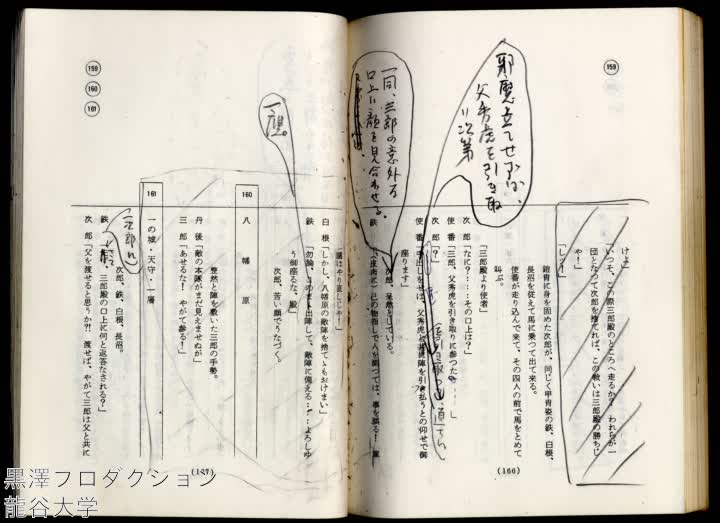 159
邪魔立てせずば、
父秀虎を引き取
り次第
一同、三郎の意外な
口上に顔を見合わせる。
けよ」
いつそ、この際三郎殿のところへ走るか？　われらが一
団となつて次郎を捨てれば、この戦いは三郎殿の勝ちじ
や！」
「しッ！」
鎧冑に身を固めた次郎が、同じく甲冑姿の鉄、白根、
長沼を従えて馬に乗つて出て来る。
使番が走り込んで来て、その四人の前で馬をとめて
叫ぶ。
「三郎殿より使者」
次郎「なに？……その口上は？」
使番「三郎、父秀虎を引き取りに参つた
次郎「？」
使番「手出しをせねば、父秀虎と共に陣を引き払うとの仰せで御
座ります」
次郎、呆然としている。
鉄
(166)
159
160
161
一つ頷。
「旗はやり直しじや！」
白根「しかし、八幡原の敵を捨ておけまい」
鉄「勿論、このまま出陣して、敵陣に備える……よろしゆ
う御座るな、殿」
次郎、苦い顔でうなづく。
160
八幡原
整然と陣を敷いた三郎の手勢。
丹後「敵の本隊がまだ見えませぬが」
三郎「あせるな！　やがて参る！」
161
一の城・天守・一層
次郎、鉄、白根、長沼。
鉄「殿、三郎殿の口上に何と返答なされる？」
次郎「父を渡せると思うか？！　渡せば、やがて三郎は父と共に
(167)
黒澤プロダクション
龍谷大学